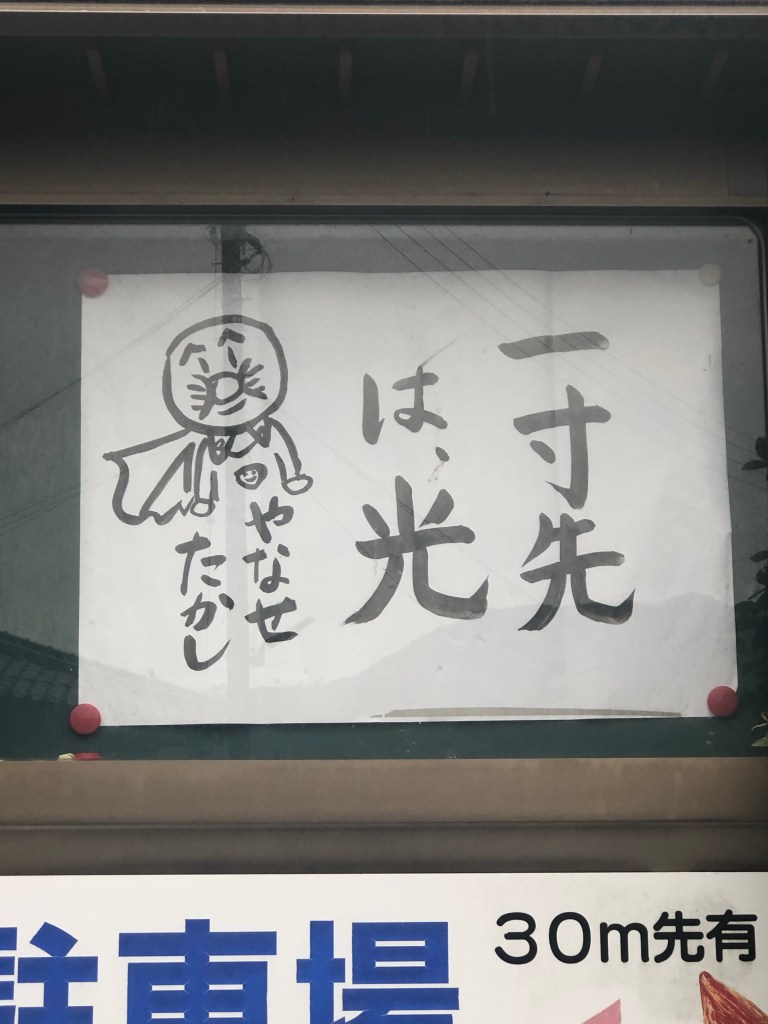 一寸先
は、光
やなせ
たかし
駐車場
30m先有